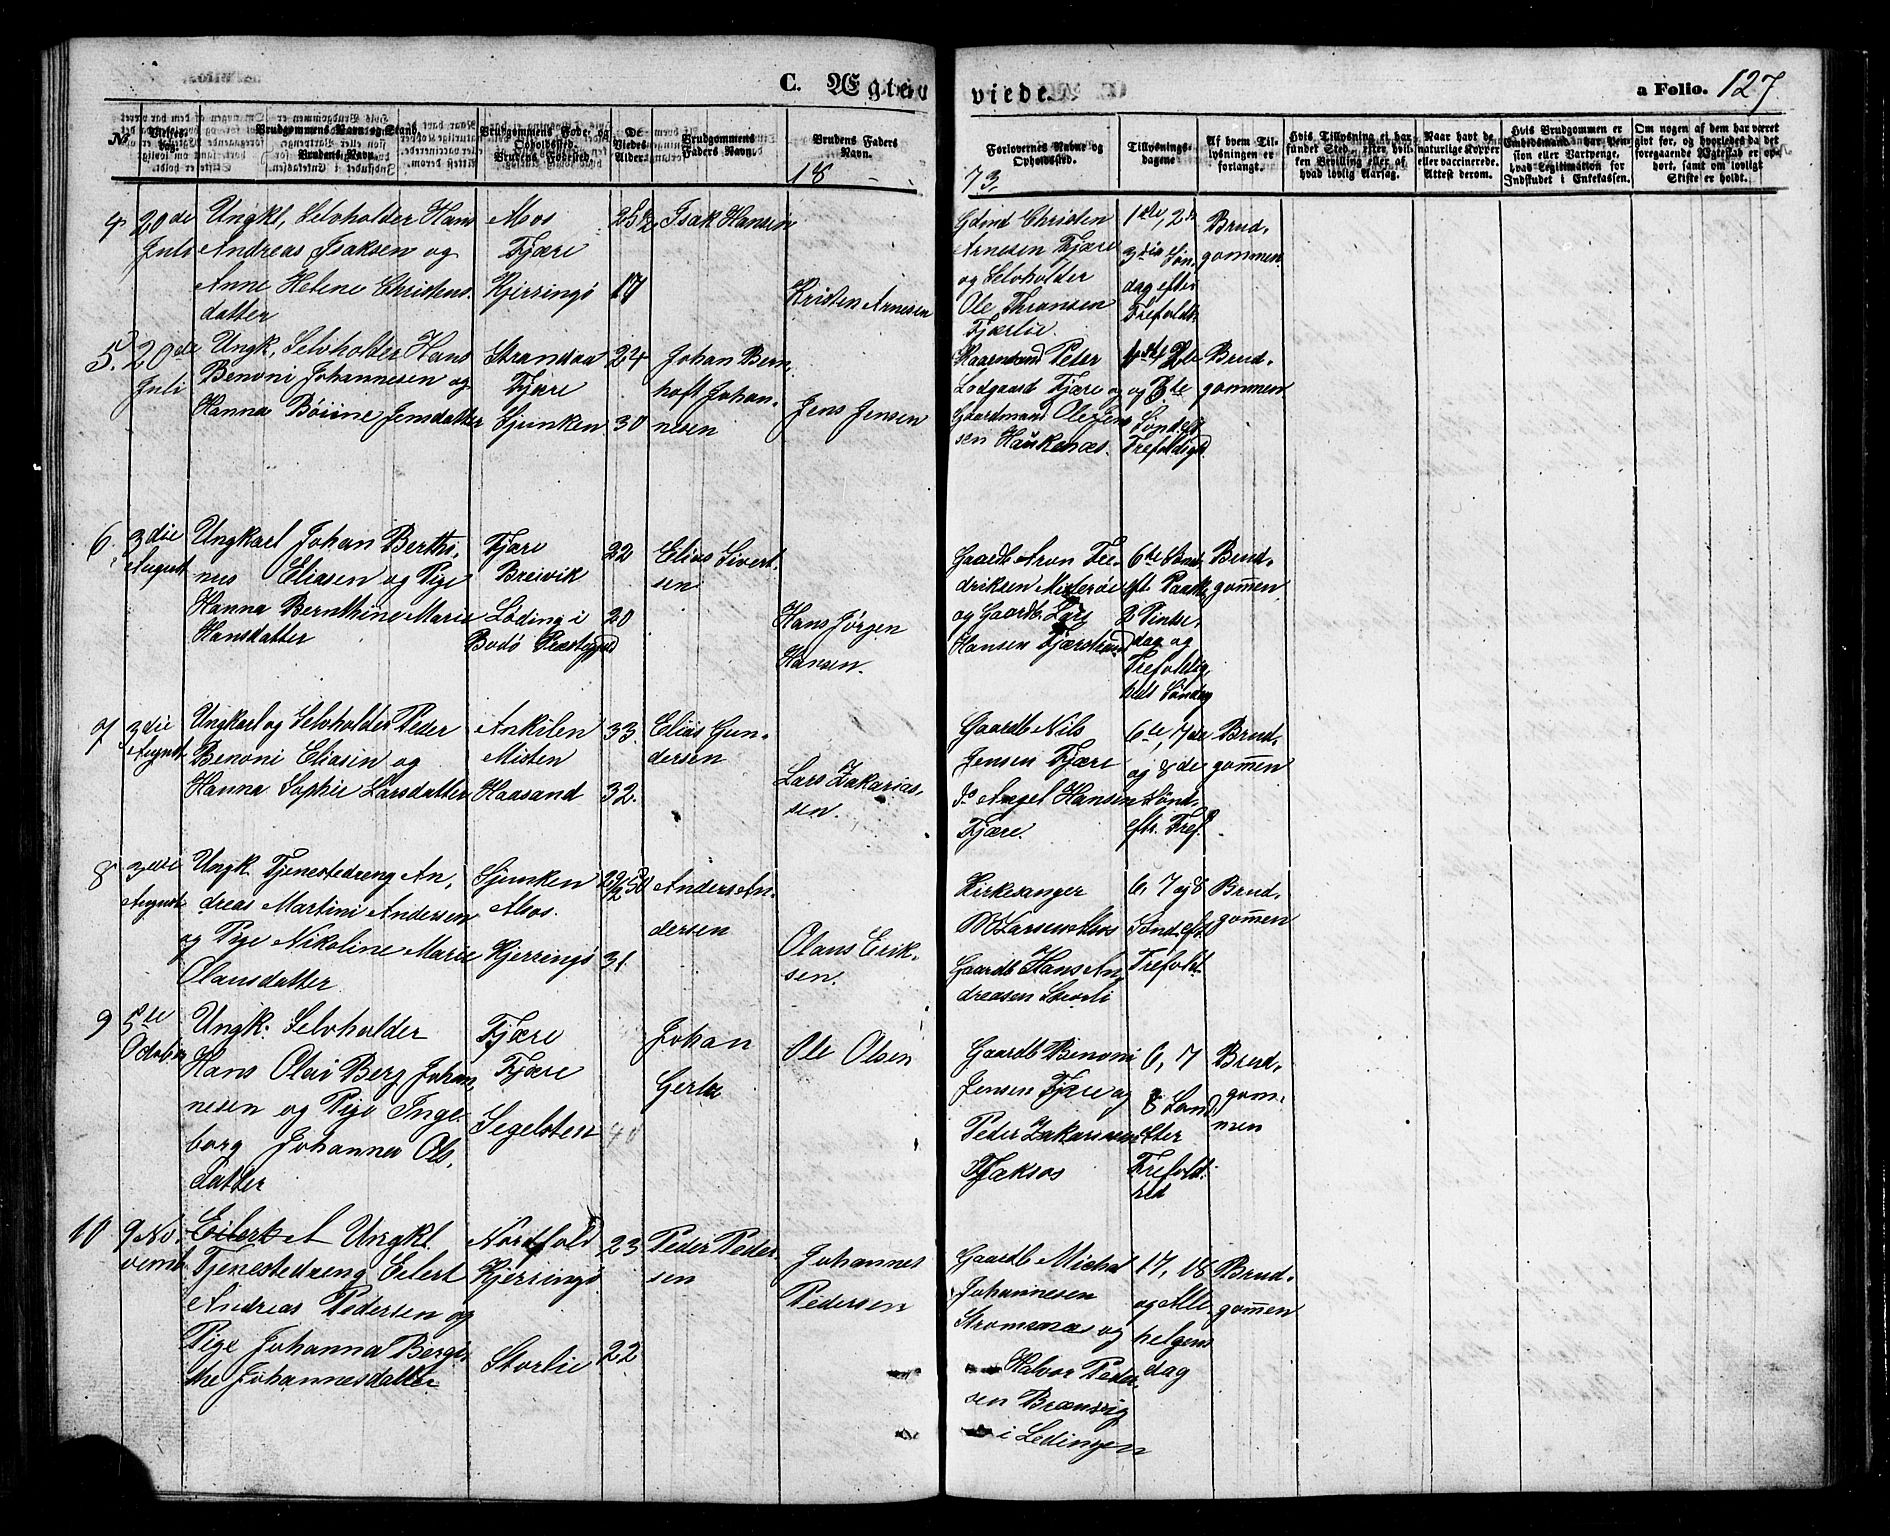 C. Ægteviede.
a Folio. 127
No.
Brudgommens Navn og Stand.
Brudens Navn.
Brudgommens Føde- og Opholdssted.
Brudens Fødested.
De Viedes Alder.
Brudgommens Faders Navn.
Brudens Faders Navn.
Forlovernes Navne og Opholdssted.
Tillysnings-dagene
Af hvem Tillysningen er forlangt.
Hvis Tillysning ei har fundet Sted, efter hvilken Bevilling eller af hvad lovlig Aarsag.
Naar havt de naturlige Kopper eller vaccinerede. Attest derom.
Hvis Brudgommen er Embedsmand, har Pension eller Vartpenge, hvad Legitimation for Indskudet i Enkekassen.
Om nogen af dem har været givt før, og hvorledes da det foregaaende Ægteskab er ophørt, samt om lovligt Skifte er holdt.
18
73.
4 20de Juli
Ungkl, Selvholder Hans
Andreas Isaksen og
Anne Helene Christens-
datter
Mos
Fjære
Kjerringö
25½
17
Isak Hansen
Kristen Arnesen
Christen
Arnesen Fjære
og Selvholder
Ole Thransen
Fjærlie.
1ste, 2de
3die Søn-
dag efter
Trefoldt.
Brud-
gommen
5. 20de Juli
Ungk, Selvholder Hans
Benoni Johannesen og
Hanna Böiine Jensdatter
Strandaa
Fjære
Sjunken
24
30
Johan Bern-
hoft Johan-
nesen
Jens Jensen
Peter
Lodgaard Fjære og
Gaardmand Ole Jen-
sen Haukenæs.
1ste 2de
og 3die
Sönd eft
Trefoldigd
Brud-
gommen
6. 3die August
Ungkarl Johan Berthi-
nus Eliasen og Pige
Hanna Bernthine Marie
Hansdatter
Fjære
Breivik
Løding i
Bodö Præstegjeld
22
20
Elias Sivert-
sen
Hans Jörgen
Hansen.
Gaardb Aron Fre-
driksen Misteröe
og Gaardb Lars
Hansen Fjærstrand
6te Sönd
eft Paaske
2 Pintse-
dag og
Trefoldig-
heds Söndag
Brud-
gom̅en
7 3die August
Ungkarl og Selvholder Peder
Benoni Eliasen og
Hanna Sophie Larsdatter
Ankilen
Misten
Haasand
33.
32.
Elias Gun-
dersen
Lars Zakarias-
sen.
Gaardb Nils
Jensen Fjære
Do Angel Hansen
Fjære.
6te, 7de
og 8de
Sönd.
eftr. Tref.
Brud-
gom̅en
8 3die August
Ungk. Tjenestedreng An-
dreas Martini Andersen
og Pige Nikoline Marie
Olausdatter.
Sjunken
Mos.
Kjerringö
31
Anders An-
dersen
Olaus Erik-
sen.
Kirkesanger
Larsen Mos
Gaardb Hans An-
dreasen Storli
6, 7 og 8
Sönd. eft.
Trefoldt.
Brud-
gom̅en
9 5te October
Ungk. Selvholder
Hans Olai Berg Johan-
nesen og Pige Inge-
borg Johanna Ols-
datter
Fjære
Fjære
Segelsten
40
Johan
Gerts
Ole Olsen
Gaardb Benoni
Jensen Fjære og
Peder Zakariasen
Tjæksos
6, 7
8 Sönd.
efter
Trefoldt:
hed
Brud-
gom-
men
10 9 No-
vembr
Eilerk A Ungkl.
Tjenestedreng Eilert
Andreas Pedersen og
Pige Johanna Bergit-
the Johannesdatter
Nordfold
Kjerringö
Storlie
23
22
Peder Peder-
sen
Johannes
Pedersen
Gaardb Michal
Johannesen
Strömsnæs og
Halvor Peder-
sen Brænsvig
i Lödingen
17, 18
og Alle-
helgens
dag
Brud-
gom̅en